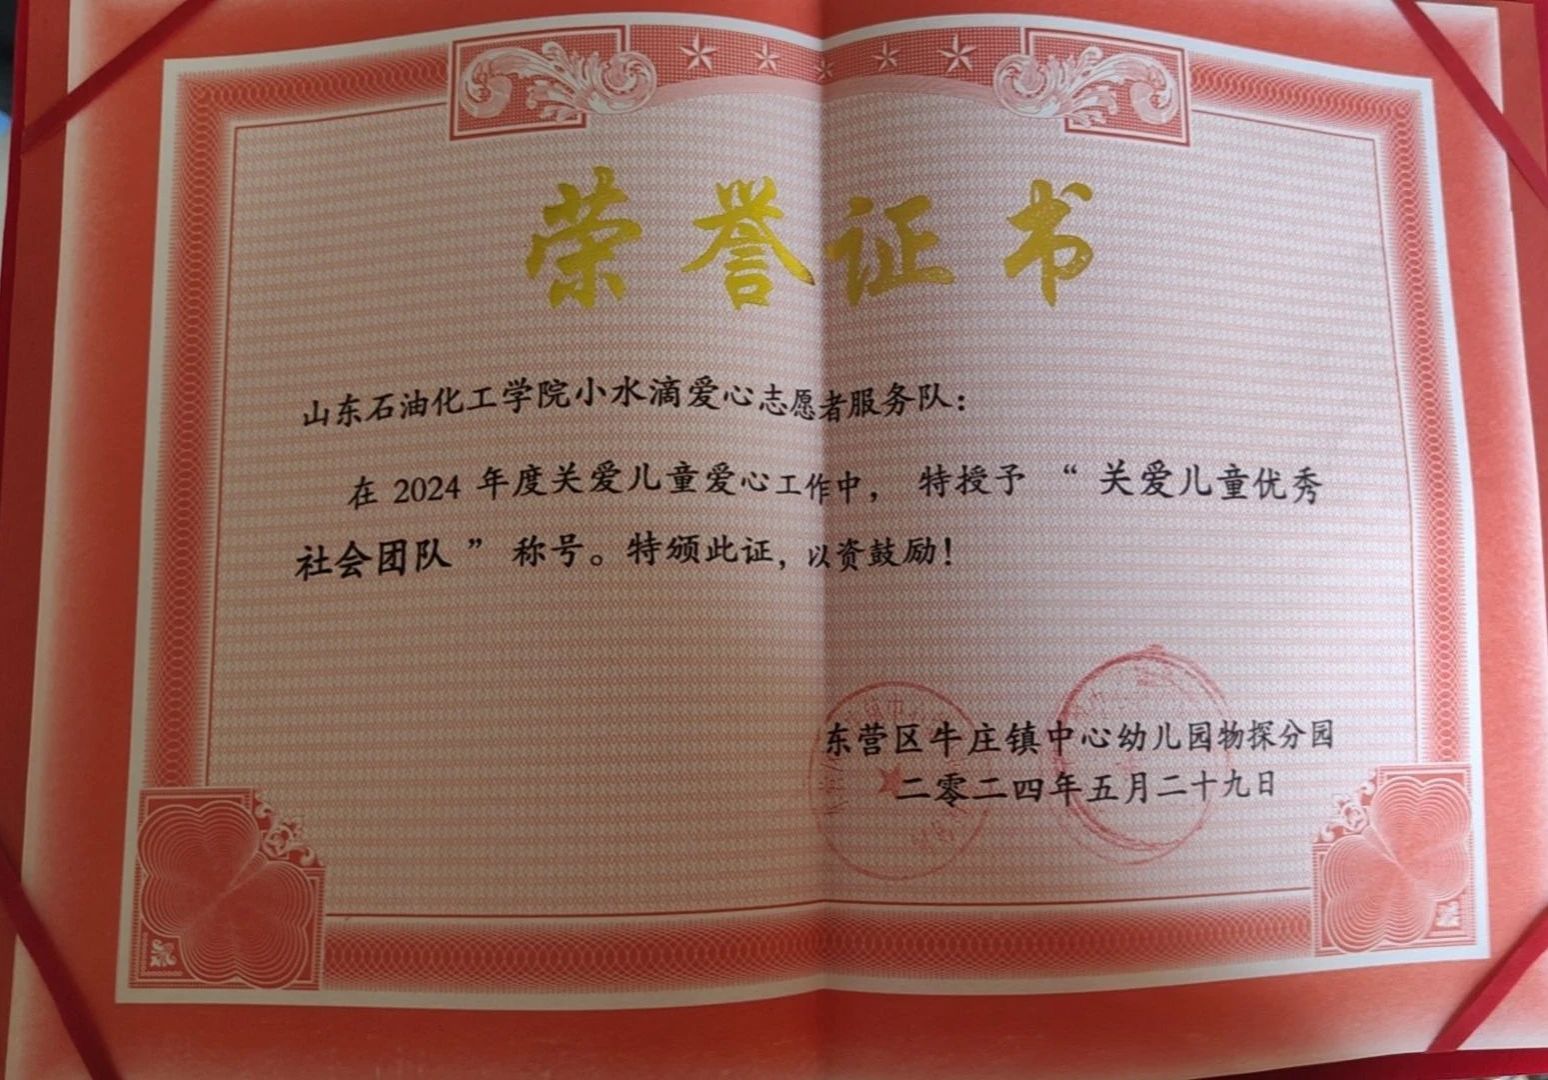 荣誉证书
山东石油化工学院小水滴爱心志愿者服务队：
在 2024 年度关爱儿童爱心工作中，特授予“关爱儿童优秀
社会团队”称号。特颁此证，以资鼓励！
东营区牛庄镇中心幼儿园物探分园
二零二四年五月二十九日